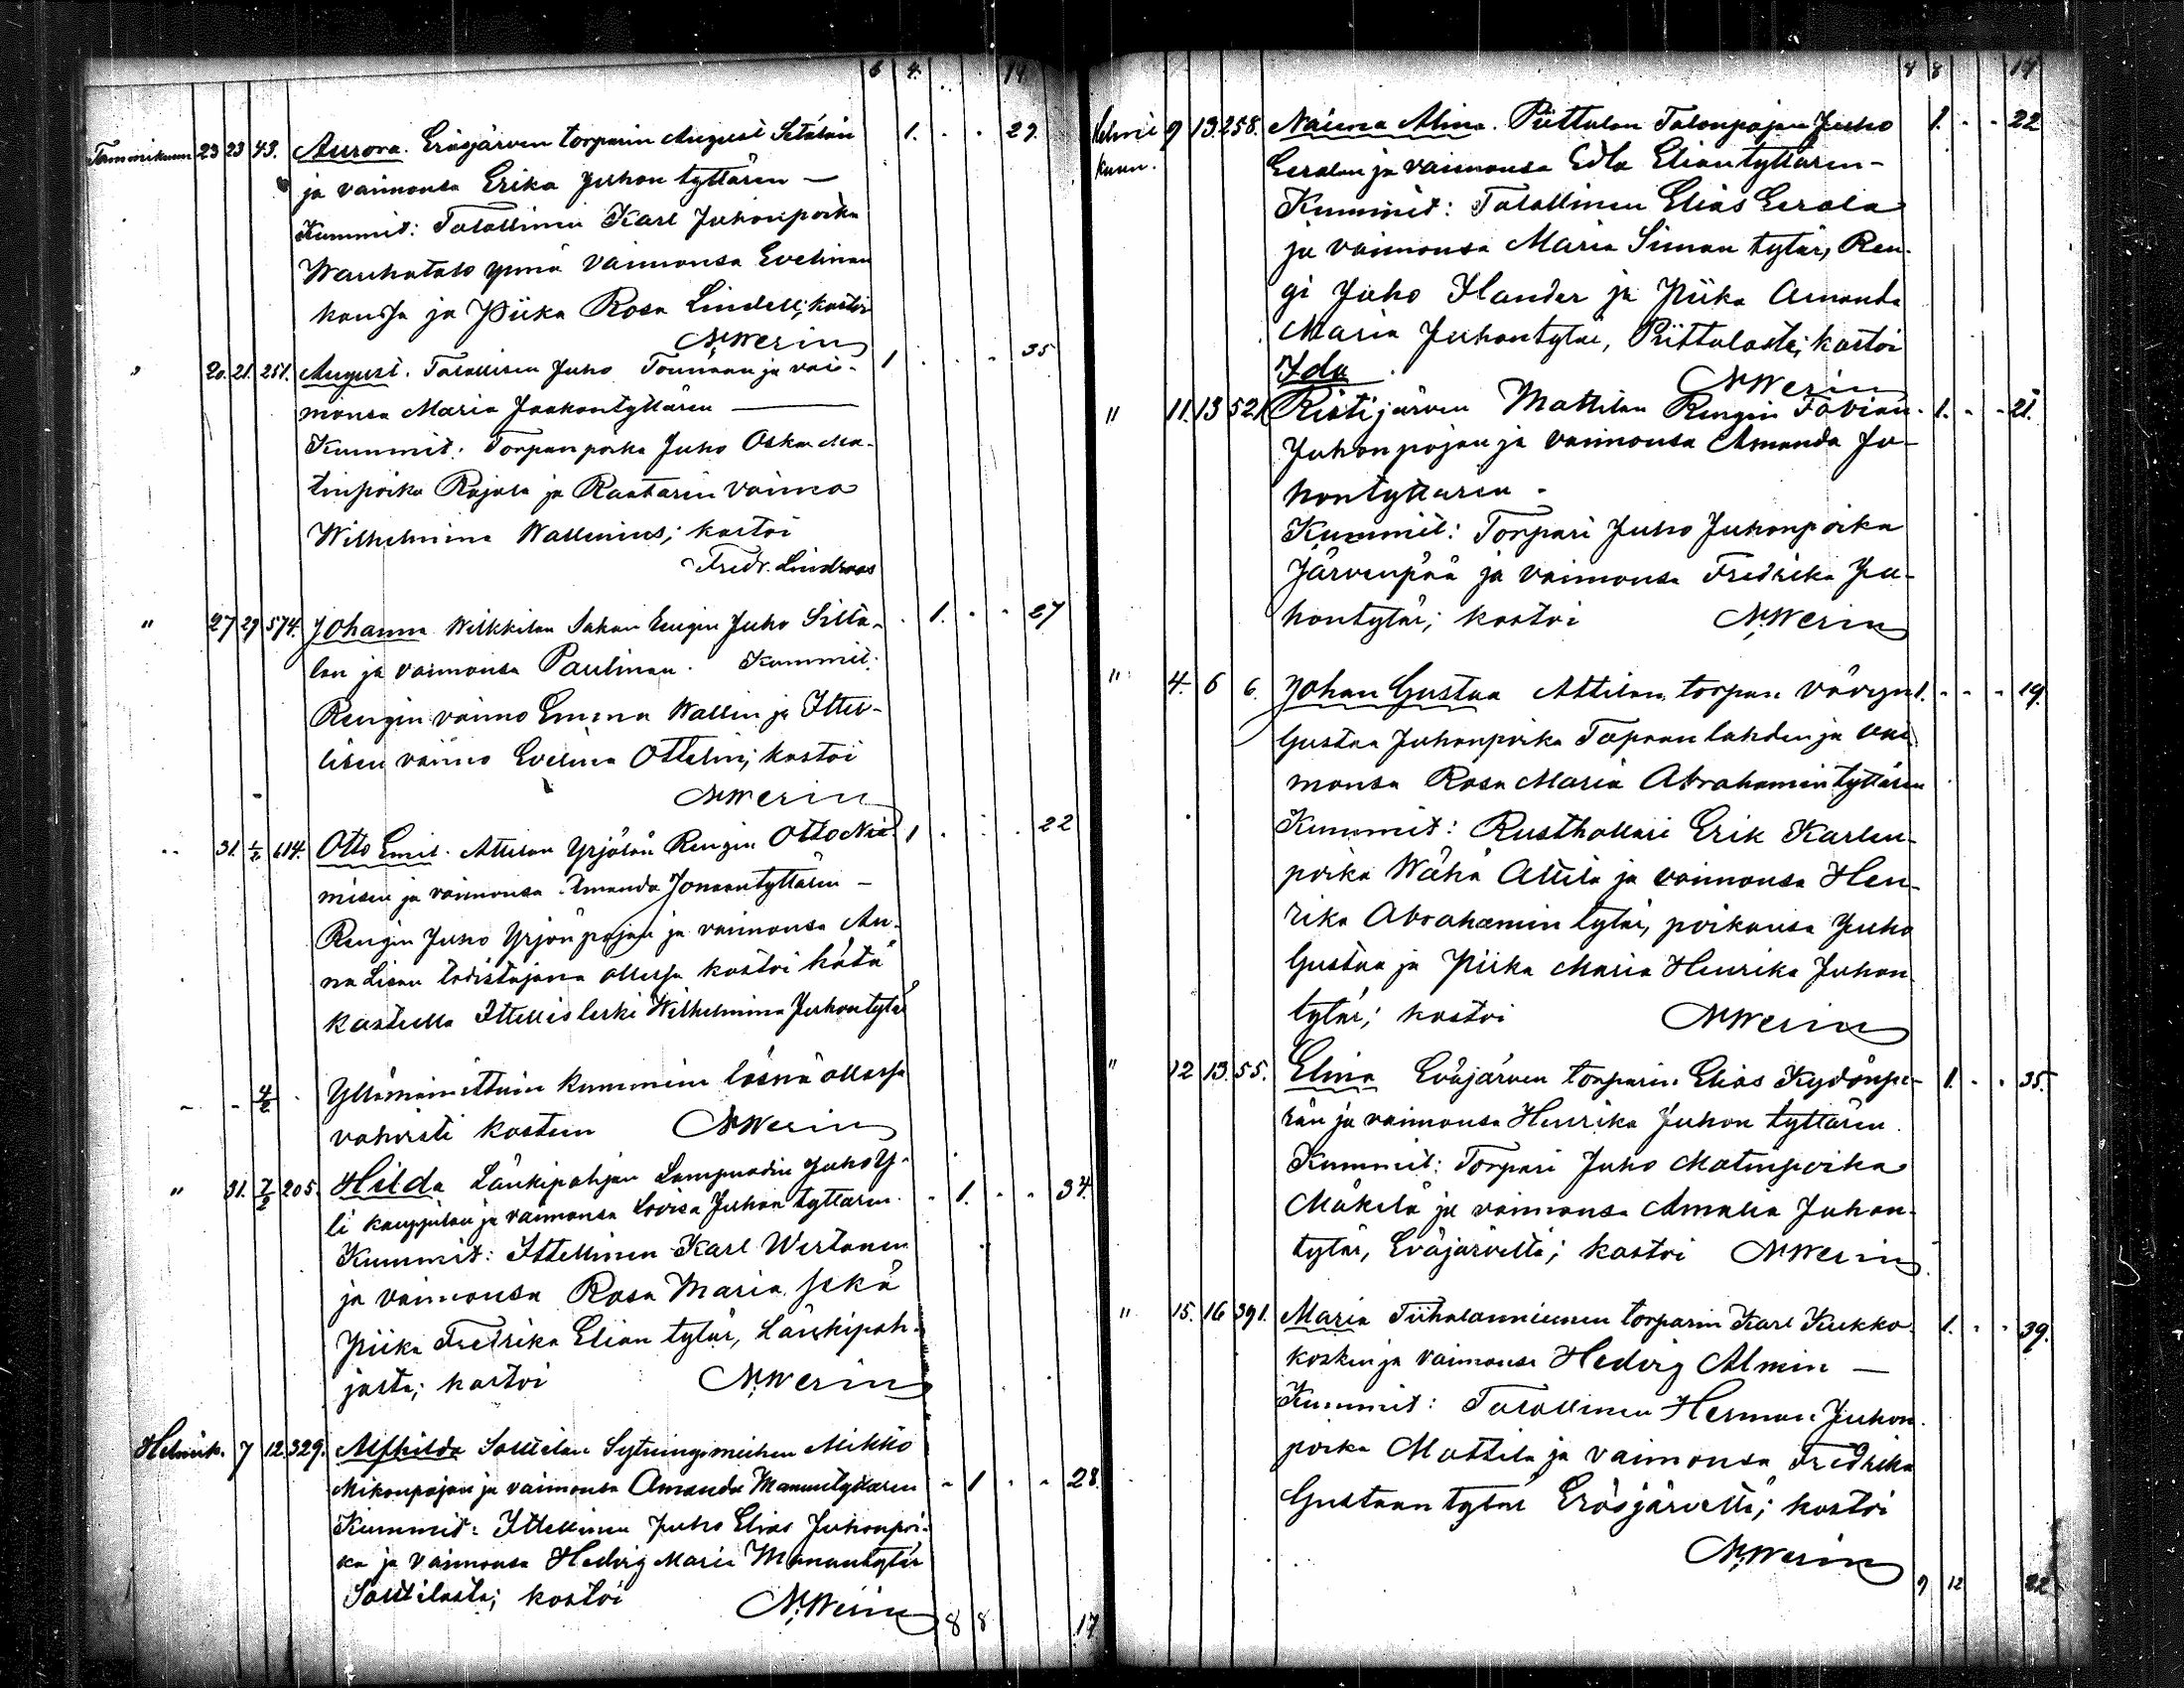 6 4. 14
Tammikuun 23 23 43. Aurora. Eräsjärven torparin August Setälän 1. 29.
ja vaimonsa Erika Juhon tyttären —
Kummit: Talollinen Karl Juhonpoika
Wanhatalo ynnä vaimonsa Evelinan
kanssa ja Piika Rosa Lindell; kastoi
N. Werin
" 20. 21. 251. August. Talollisen Juho Tommolan ja vai- 1 35
monsa Maria Jaakontyttären —
Kummit: Torpan poika Juho Oskar Ma-
tinpoika Rajala ja Raatarin vaimo
Wilhelmina Wallenius; kastoi
Fredr. Lindroos
" 27 29 574. Johanna Wilkkilan Sahan Rengin Juho Sillä- 1. 27
lan ja vaimonsa Paulinan. Kummit:
Rengin vaimo Emma Wallin ja Ittel-
lisen vaimo Evelina Ottelin; kastoi
N. Werin
" 31. 1/2 614. Otto Emil. Attilan Yrjölän Rengin Otto Nie- 1 22
misen ja vaimonsa Amanda Joonaantyttären —
Rengin Juho Yrjönpojan ja vaimonsa An-
na Lisan todistajana ollessa kastoi hätä
kasteella Ittellis leski Wilhelmina Juhontytär
4/2 Yllämainittuin kummien läsnä ollessa
vahvisti kasteen N. Werin
" 31. 7/2 205. Hilda Länkipohjan Lampuodin Juho Y- 1. 34.
li kauppilan ja vaimonsa Lovisa Juhon tyttären.
Kummit: Ittellinen Karl Wirtanen
ja vaimonsa Rosa Maria sekä
Piika Fredrika Elian tytär, Länkipoh-
jasta; kastoi N. Werin
Helmik. 7 12. 329. Alfhilda Sauttilan Sytningimiehen Mikko
Mikonpojan ja vaimonsa Amanda Mannuntyttären 1 28.
Kummit: Ittellinen Juho Elias Juhonpoi-
ka ja vaimonsa Hedvig Maria Manuntytär
Sauttilasta; kastoi N. Werin
8 8 17.
8 8 17
Helmi 9 13. 258. Naima Alina. Piittalan Talonpojan Juho 1. 22
kuun. Eerolan ja vaimonsa Edla Eliantyttären —
Kummit: Talollinen Elias Eerola
ja vaimonsa Maria Simon tytär, Ren-
gi Juho Ilander ja Piika Amanda
Maria Juhontytär, Piittalasta; kastoi
Ida N. Werin
" 11. 13 521. Ristijärven Mattilan Rengin Fabian 1. 21.
Juhonpojan ja vaimonsa Amanda Ju-
hontyttären.
Kummit: Torpari Juho Juhonpoika
Järvenpää ja vaimonsa Fredrika Ju-
hontytär; kastoi N. Werin
" 4. 6 6. Johan Gustaa Attilan torpan vävyn 1. 19.
Gustaa Juhonpoika Tapaanlahden ja vai
monsa Rosa Maria Abrahamintyttären
Kummit: Rusthollari Erik Karlen-
poika Wähä Attila ja vaimonsa Hen-
rika Abrahamin tytär, poikansa Juho
Gustaa ja Piika Maria Henrika Juhon
tytär; kastoi N. Werin
" 12 13. 55. Elina Eväjärven torparin Elias Kydönpe- 1. 35.
rän ja vaimonsa Henrika Juhon tyttären.
Kummit: Torpari Juho Matinpoika
Mäkelä ja vaimonsa Amalia Juhon-
tytär, Eväjärveltä; kastoi N. Werin
" 15. 16 391. Maria Tiihalanniemen torparin Karl Kukko- 1. 39.
kosken ja vaimonsa Hedvig Almin —
Kummit: Talollinen Herman Juhon
poika Mattila ja vaimonsa Fredrika
Gustaan tytär Eräsjärveltä; kastoi
N. Werin
9 12 22